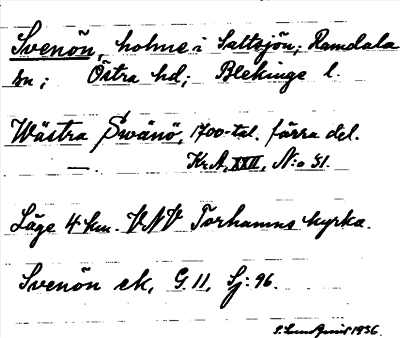 Svenön, holme i Saltsjön; Ramdala
sn; Östra hd; Blekinge l.
Wästra Swänö, 1700-tal. färra del.
—. Kr.A. XXII, N:o 31.
Läge 4 km. VNV Torhamns kyrka.
Svenön ek, G. 11, Sj: 96.
S. Lundquist 1936.